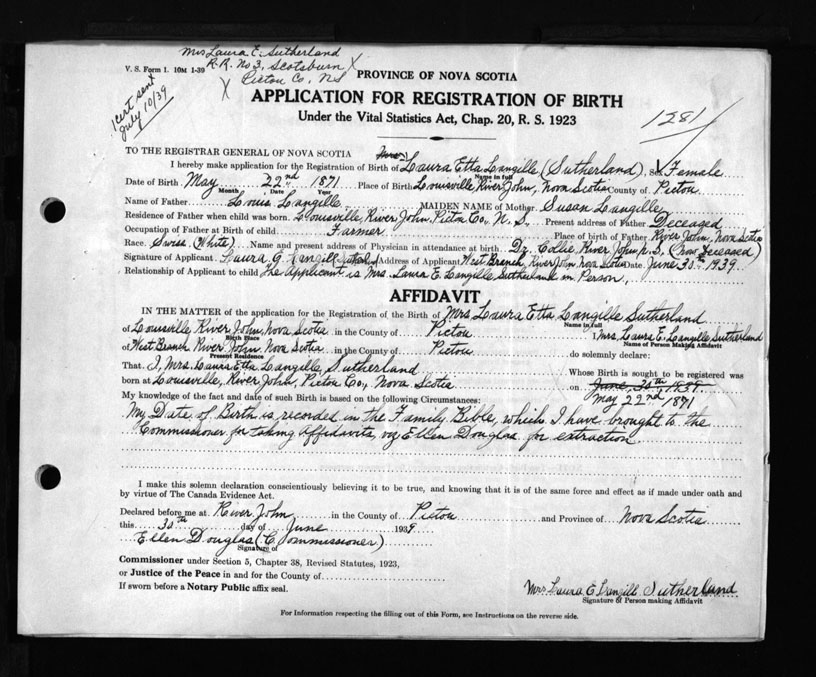 Mrs Laura E. Sutherland
V. S. Form 1. 10M 1-39 R.R. No 3, Scotsburn X
X Pictou Co, N.S.
1 cert sent
July 10/39
PROVINCE OF NOVA SCOTIA
APPLICATION FOR REGISTRATION OF BIRTH
Under the Vital Statistics Act, Chap. 20, R. S. 1923
1281
TO THE REGISTRAR GENERAL OF NOVA SCOTIA
I hereby make application for the Registration of Birth of Mrs Laura Etta Langille (Sutherland), Sex Female
Name in full
Date of Birth May 22nd 1871 Place of Birth Louisville, River John, Nova Scotia County of Pictou
Month Date Year
Name of Father Louis Langille MAIDEN NAME of Mother Susan Langille
Residence of Father when child was born. Louisville, River John, Pictou Co., N. S. Present address of Father Deceased
Occupation of Father at Birth of child Farmer Place of birth of Father River John, Nova Scotia
Race. Swiss (White) Name and present address of Physician in attendance at birth Dr. Collie, River John, N.S. (now Deceased)
Signature of Applicant Laura E. Langill Sutherland Address of Applicant West Branch, River John, Nova Scotia Date. June 30th 1939.
Relationship of Applicant to child The Applicant is Mrs. Laura E. Langille Sutherland in Person.
AFFIDAVIT
IN THE MATTER of the application for the Registration of the Birth of Mrs. Laura Etta Langille Sutherland
Name in full
of Louisville, River John, Nova Scotia in the County of Pictou I Mrs. Laura E. Langille Sutherland
Birth Place Name of Person Making Affidavit
of West Branch River John, Nova Scotia in the County of Pictou do solemnly declare:
Present Residence
That I, Mrs. Laura Etta Langille Sutherland Whose Birth is sought to be registered was
born at Louisville, River John, Pictou Co., Nova Scotia on June, 30th, 1939.
May 22nd 1871
My knowledge of the fact and date of such Birth is based on the following Circumstances:
My Date of Birth is recorded in the Family Bible, which I have brought to the
Commissioner for taking Affidavits, viz Ellen Douglas for extraction
I make this solemn declaration conscientiously believing it to be true, and knowing that it is of the same force and effect as if made under oath and
by virtue of The Canada Evidence Act.
Declared before me at River John in the County of Pictou and Province of Nova Scotia
this 30th day of June 1939
Ellen Douglas (Commissioner)
Signature of
Commissioner under Section 5, Chapter 38, Revised Statutes, 1923,
or Justice of the Peace in and for the County of
If sworn before a Notary Public affix seal.
Mrs. Laura E Langill Sutherland
Signature of Person making Affidavit
For Information respecting the filling out of this Form, see Instructions on the reverse side.